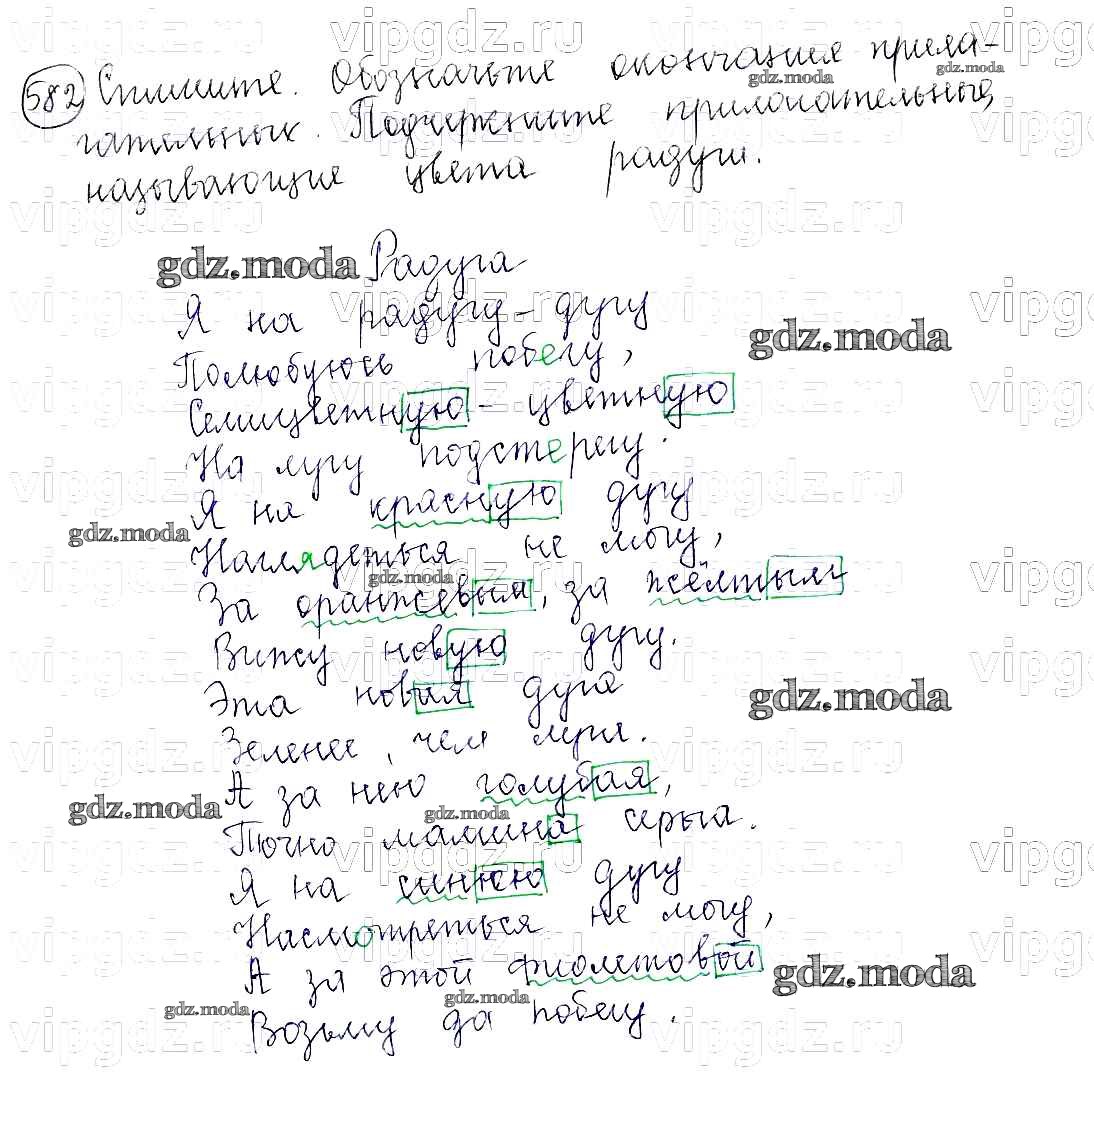 582 Спишите. Обозначьте окончания прила-
гательных. Подчеркните прилагательные,
называющие цвета радуги.
gdz.moda Радуга
Я на радугу-дугу
Полюбуюсь побегу,
Семицветную-цветную
На лугу подстерегу.
Я на красную дугу
Наглядеться не могу,
За оранжевый, за жёлтым
Вижу новую дугу.
Эта новая дуга
Зеленее, чем луга.
А за нею голубая,
Точно мамина серьга.
Я на синюю дугу
Насмотреться не могу,
А за этой фиолетовой
Возьму да побегу.